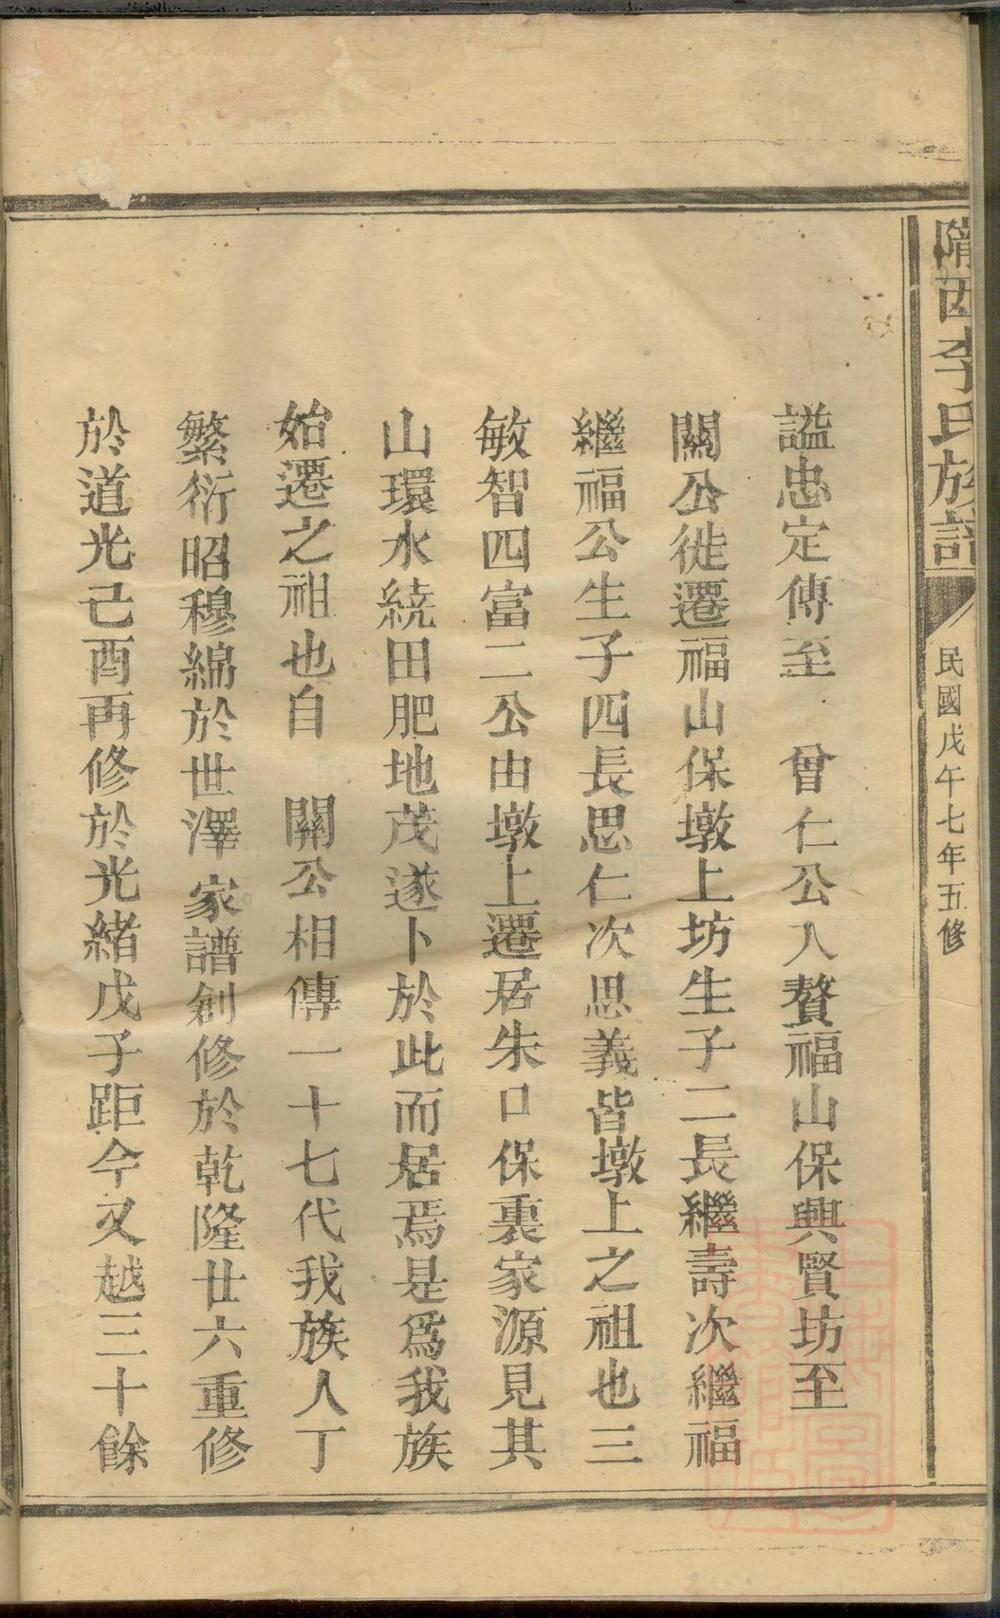 隴西李氏族譜
民國戊午七年五修
諡忠定傳至　曾仁公入贅福山保興賢坊至
關公徙遷福山保墩上坊生子二長繼壽次繼福
繼福公生子四長思仁次思義皆墩上之祖也三
敏智四富二公由墩上遷居朱口保裏家源見其
山環水繞田肥地茂遂卜於此而居焉是爲我族
始遷之祖也自　關公相傳一十七代我族人丁
繁衍昭穆綿於世澤家譜創修於乾隆廿六重修
於道光己酉再修於光緒戊子距今又越三十餘